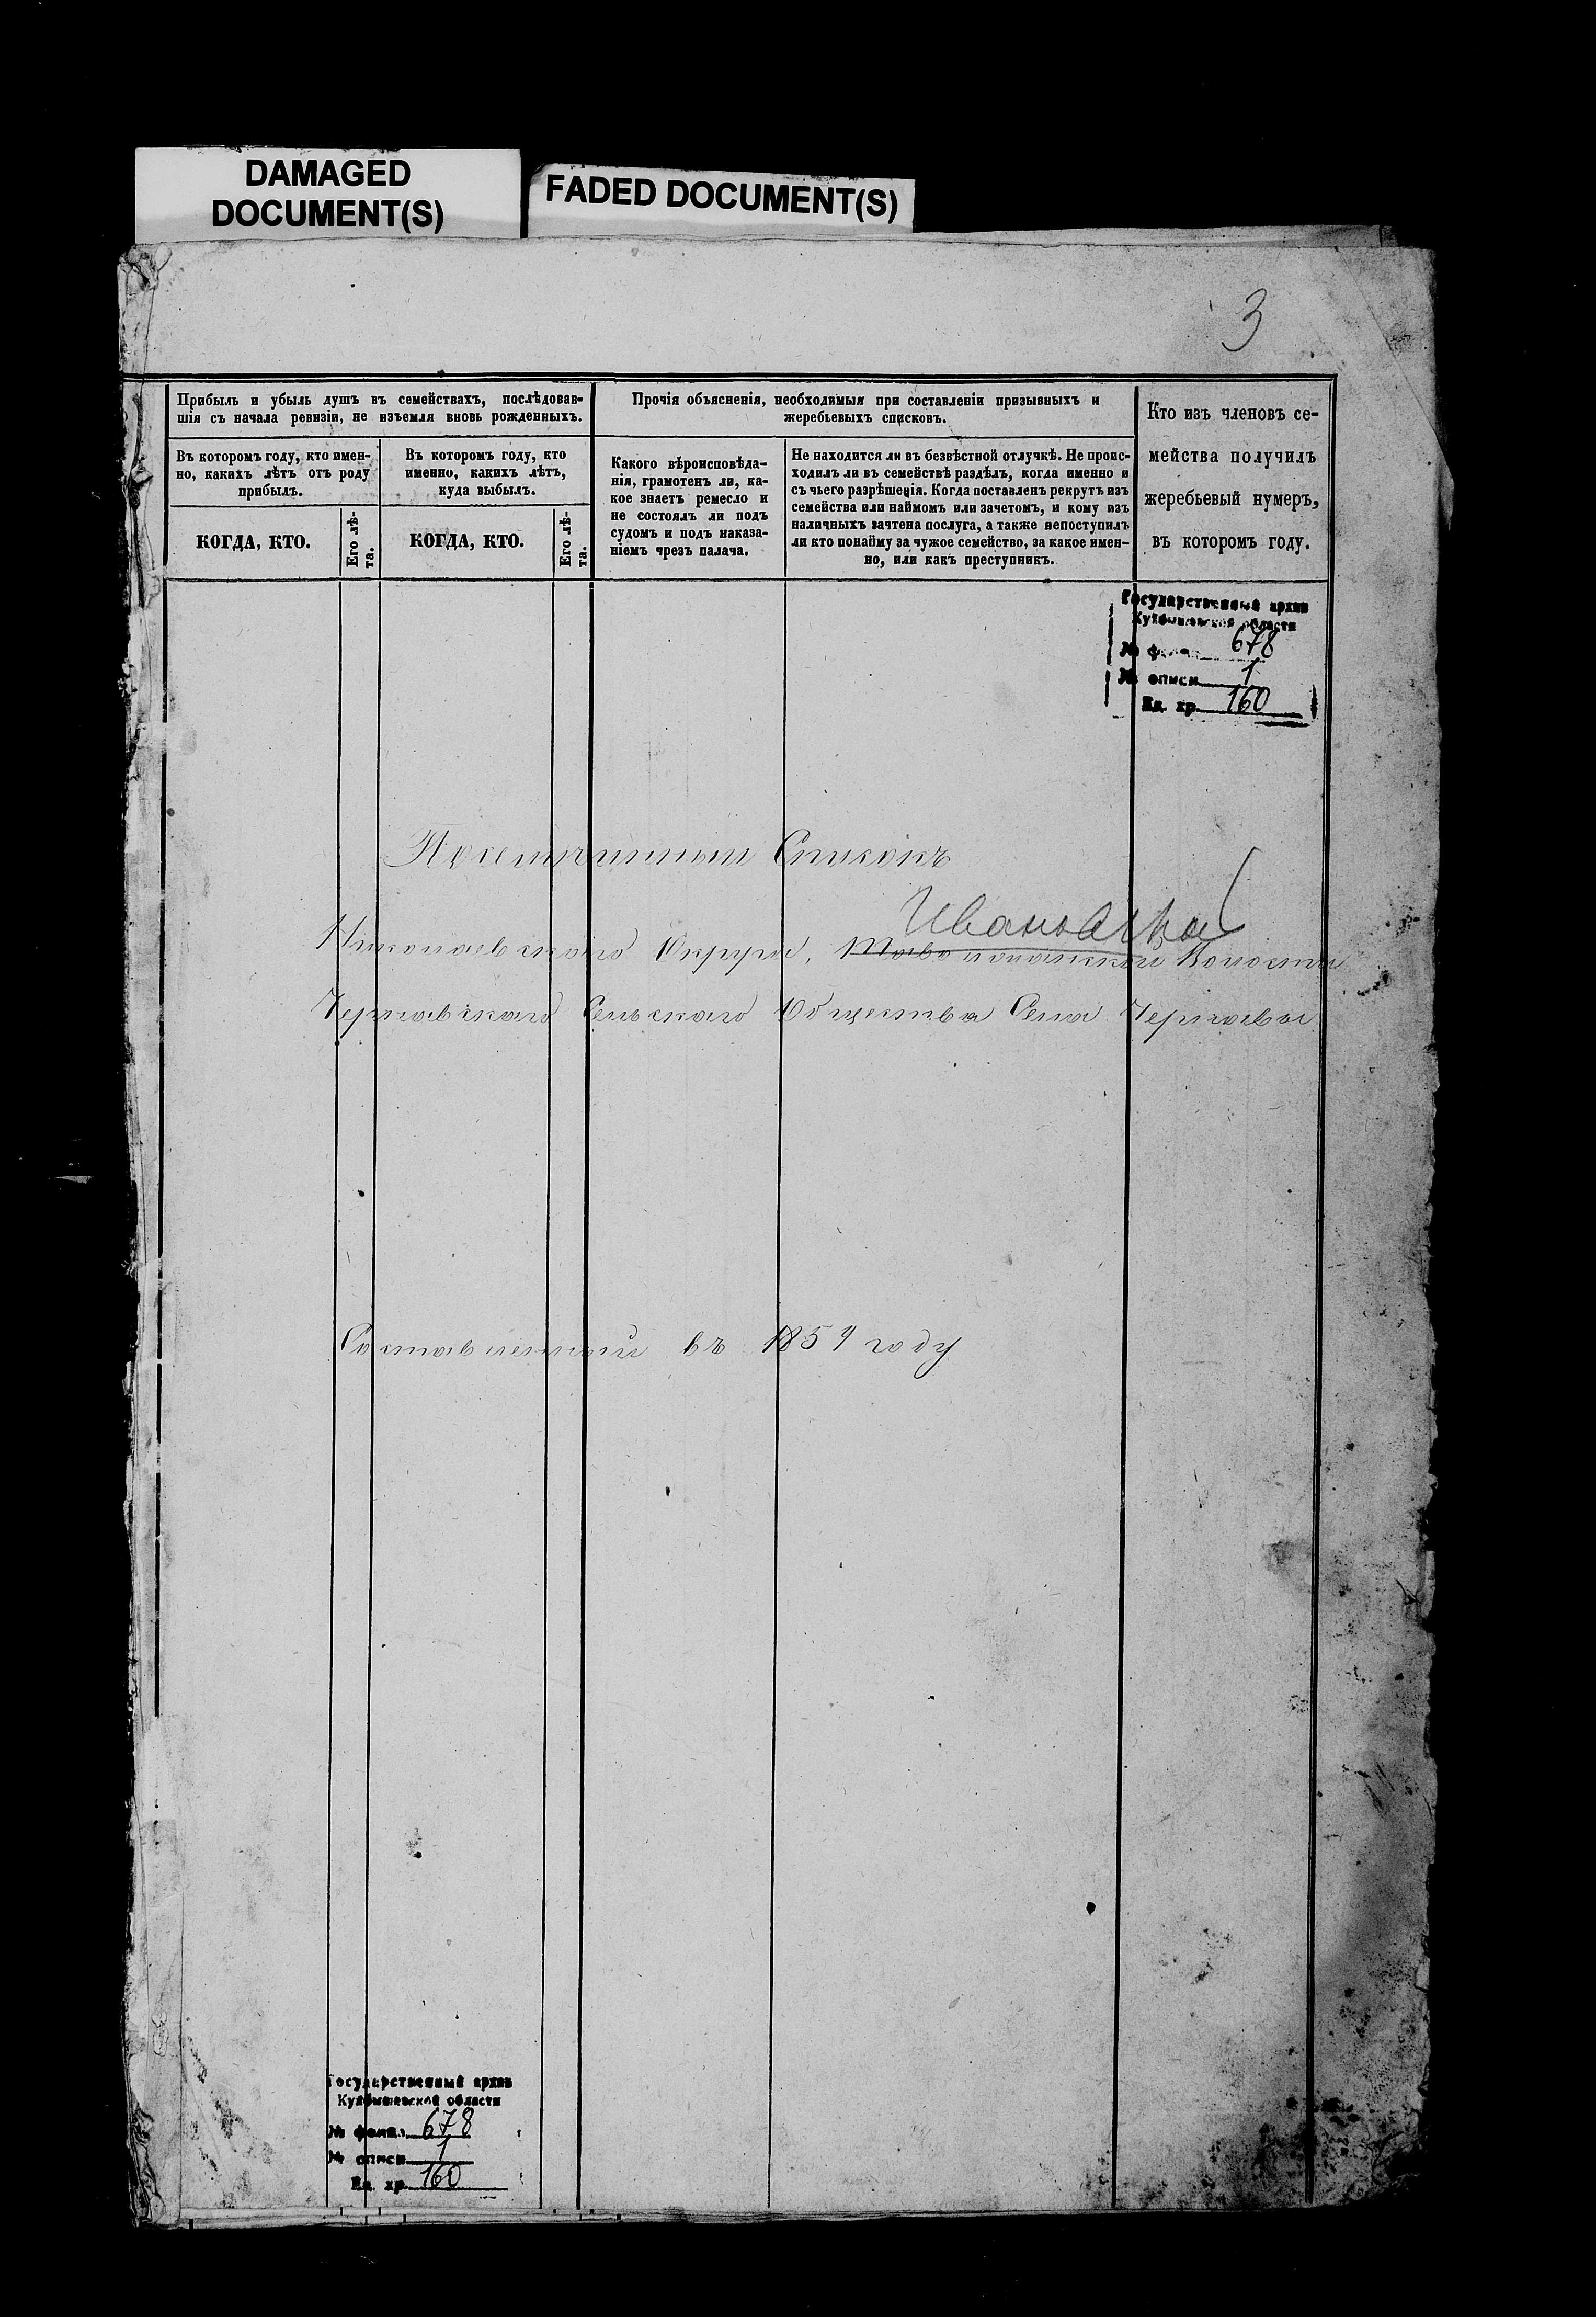 DAMAGED
DOCUMENT(S)
FADED DOCUMENT(S)
3
Прибыль и убыль душъ въ семействахъ, послѣдовав-
шія съ начала ревизіи, не изъемля вновь рожденныхъ.
Въ которомъ году, кто имен-
но, какихъ лѣтъ отъ роду
прибылъ.
КОГДА, КТО.
Его лѣ-
та.
Въ которомъ году, кто
именно, какихъ лѣтъ,
куда выбылъ.
КОГДА, КТО.
Его лѣ-
та.
Прочія объясненія, необходимыя при составленіи призывныхъ и
жеребьевыхъ списковъ.
Какого вѣроисповѣда-
нія, грамотенъ ли, ка-
кое знаетъ ремесло и
не состоялъ ли подъ
судомъ и подъ наказа-
ніемъ чрезъ палача.
Не находится ли въ безвѣстной отлучкѣ. Не проис-
ходилъ ли въ семействѣ раздѣлъ, когда именно и
съ чьего разрѣшенія. Когда поставленъ рекрутъ изъ
семейства или наймомъ или зачетомъ, и кому изъ
наличныхъ зачтена послуга, а также непоступилъ
ли кто понайму за чужое семейство, за какое имен-
но, или какъ преступникъ.
Кто изъ членовъ се-
мейства получилъ
жеребьевый нумеръ,
въ которомъ году.
Государственный архив
Куйбышевской области
№ фонда 678
№ описи 1
Ед. хр. 160
Посемейный Списокъ
Николаевскаго Округа, Волости
Сельскаго Общества Села
Составленный въ 1859 году
Государственный архив
Куйбышевской области
№ фонда 678
№ описи 1
Ед. хр. 160